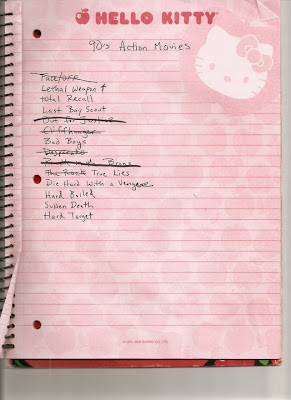 HELLO KITTY
90's Action Movies
Face/Off
Lethal Weapon 4
total Recall
Last Boy Scout
Out for Justice
Cliffhanger
Bad Boys
Desperado
Rumble in the Bronx
The Rock True Lies
Die Hard With a Vengeance
Hard Boiled
Sudden Death
Hard Target